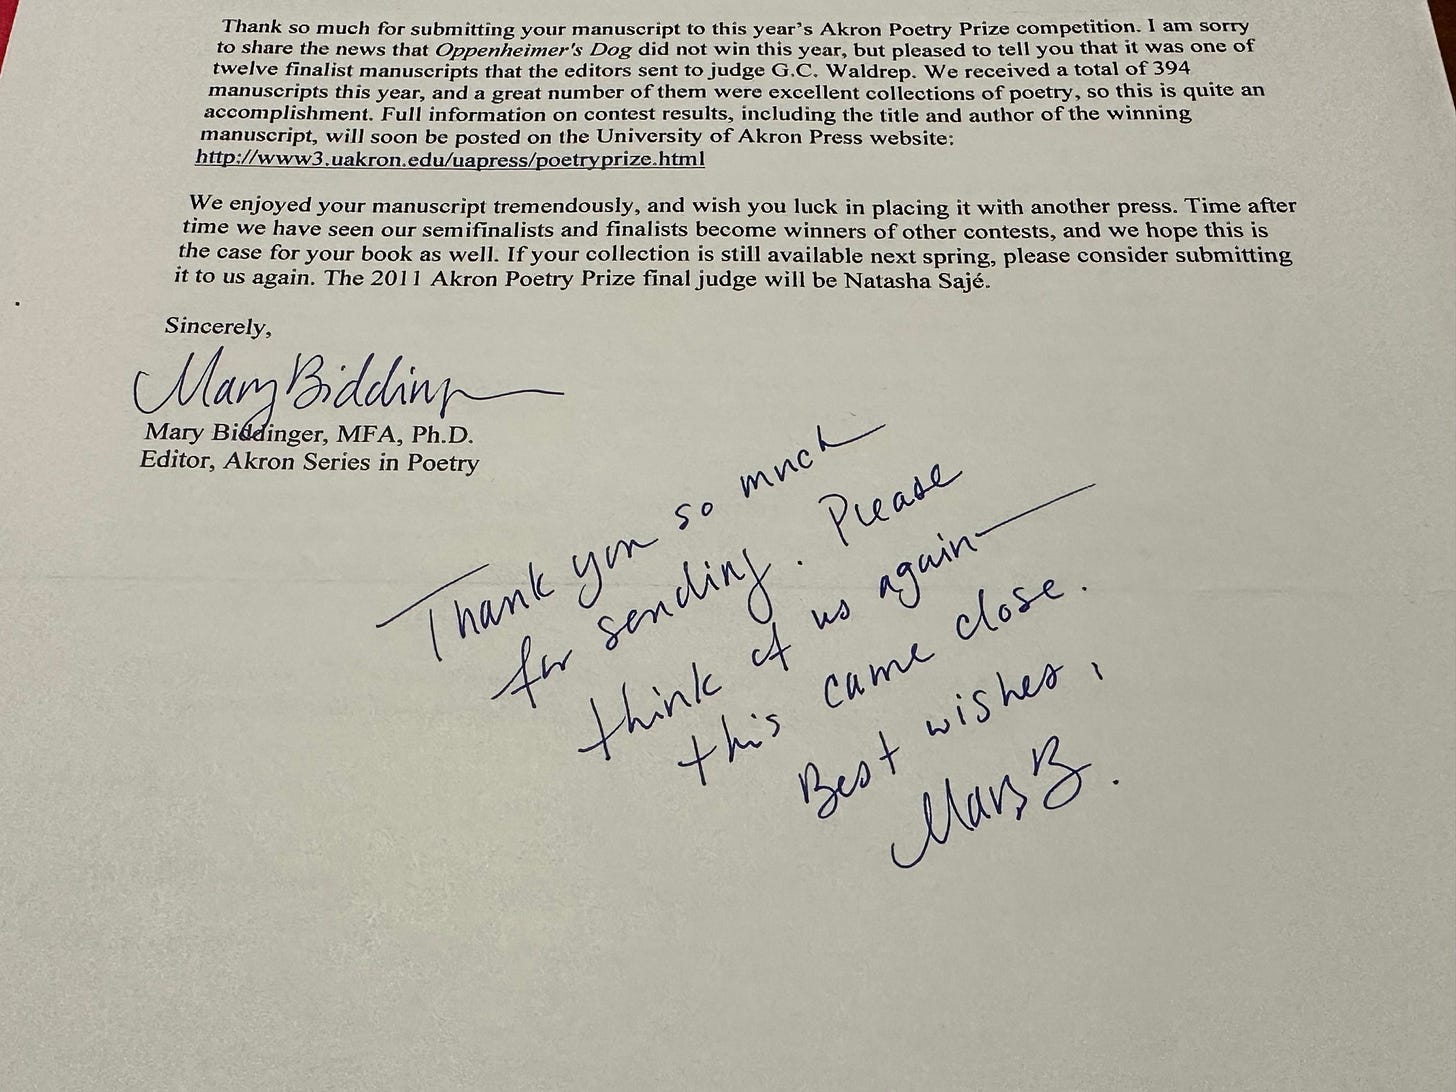 Thank so much for submitting your manuscript to this year's Akron Poetry Prize competition. I am sorry
to share the news that Oppenheimer's Dog did not win this year, but pleased to tell you that it was one of
twelve finalist manuscripts that the editors sent to judge G.C. Waldrep. We received a total of 394
manuscripts this year, and a great number of them were excellent collections of poetry, so this is quite an
accomplishment. Full information on contest results, including the title and author of the winning
manuscript, will soon be posted on the University of Akron Press website:
http://www3.uakron.edu/uapress/poetryprize.html
We enjoyed your manuscript tremendously, and wish you luck in placing it with another press. Time after
time we have seen our semifinalists and finalists become winners of other contests, and we hope this is
the case for your book as well. If your collection is still available next spring, please consider submitting
it to us again. The 2011 Akron Poetry Prize final judge will be Natasha Sajé.
Sincerely,
Mary Biddinger
Mary Biddinger, MFA, Ph.D.
Editor, Akron Series in Poetry
Thank you so much
for sending. Please
think of us again—
this came close.
Best wishes,
Mary B.